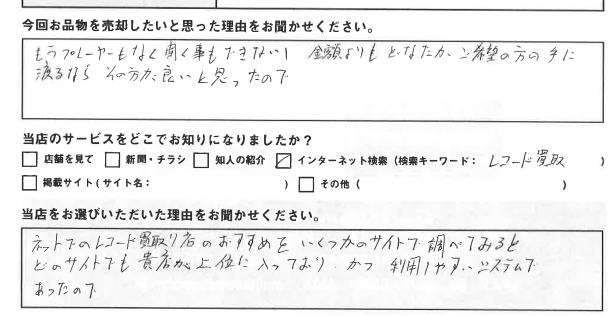 今回お品物を売却したいと思った理由をお聞かせください。
もうプレーヤーもなく聞く事もできないし 金額よりも どなたか ご希望の方の手に
渡るなら その方が良いと思ったので
当店のサービスをどこでお知りになりましたか?
□ 店舗を見て □ 新聞・チラシ □ 知人の紹介 ☑ インターネット検索(検索キーワード: レコード買取 )
□ 掲載サイト(サイト名: ) □ その他( )
当店をお選びいただいた理由をお聞かせください。
ネットでのレコード買取り店のおすすめを いくつかのサイトで調べてみると
どのサイトでも貴店が上位に入っており かつ 利用しやすいシステムで
あったので